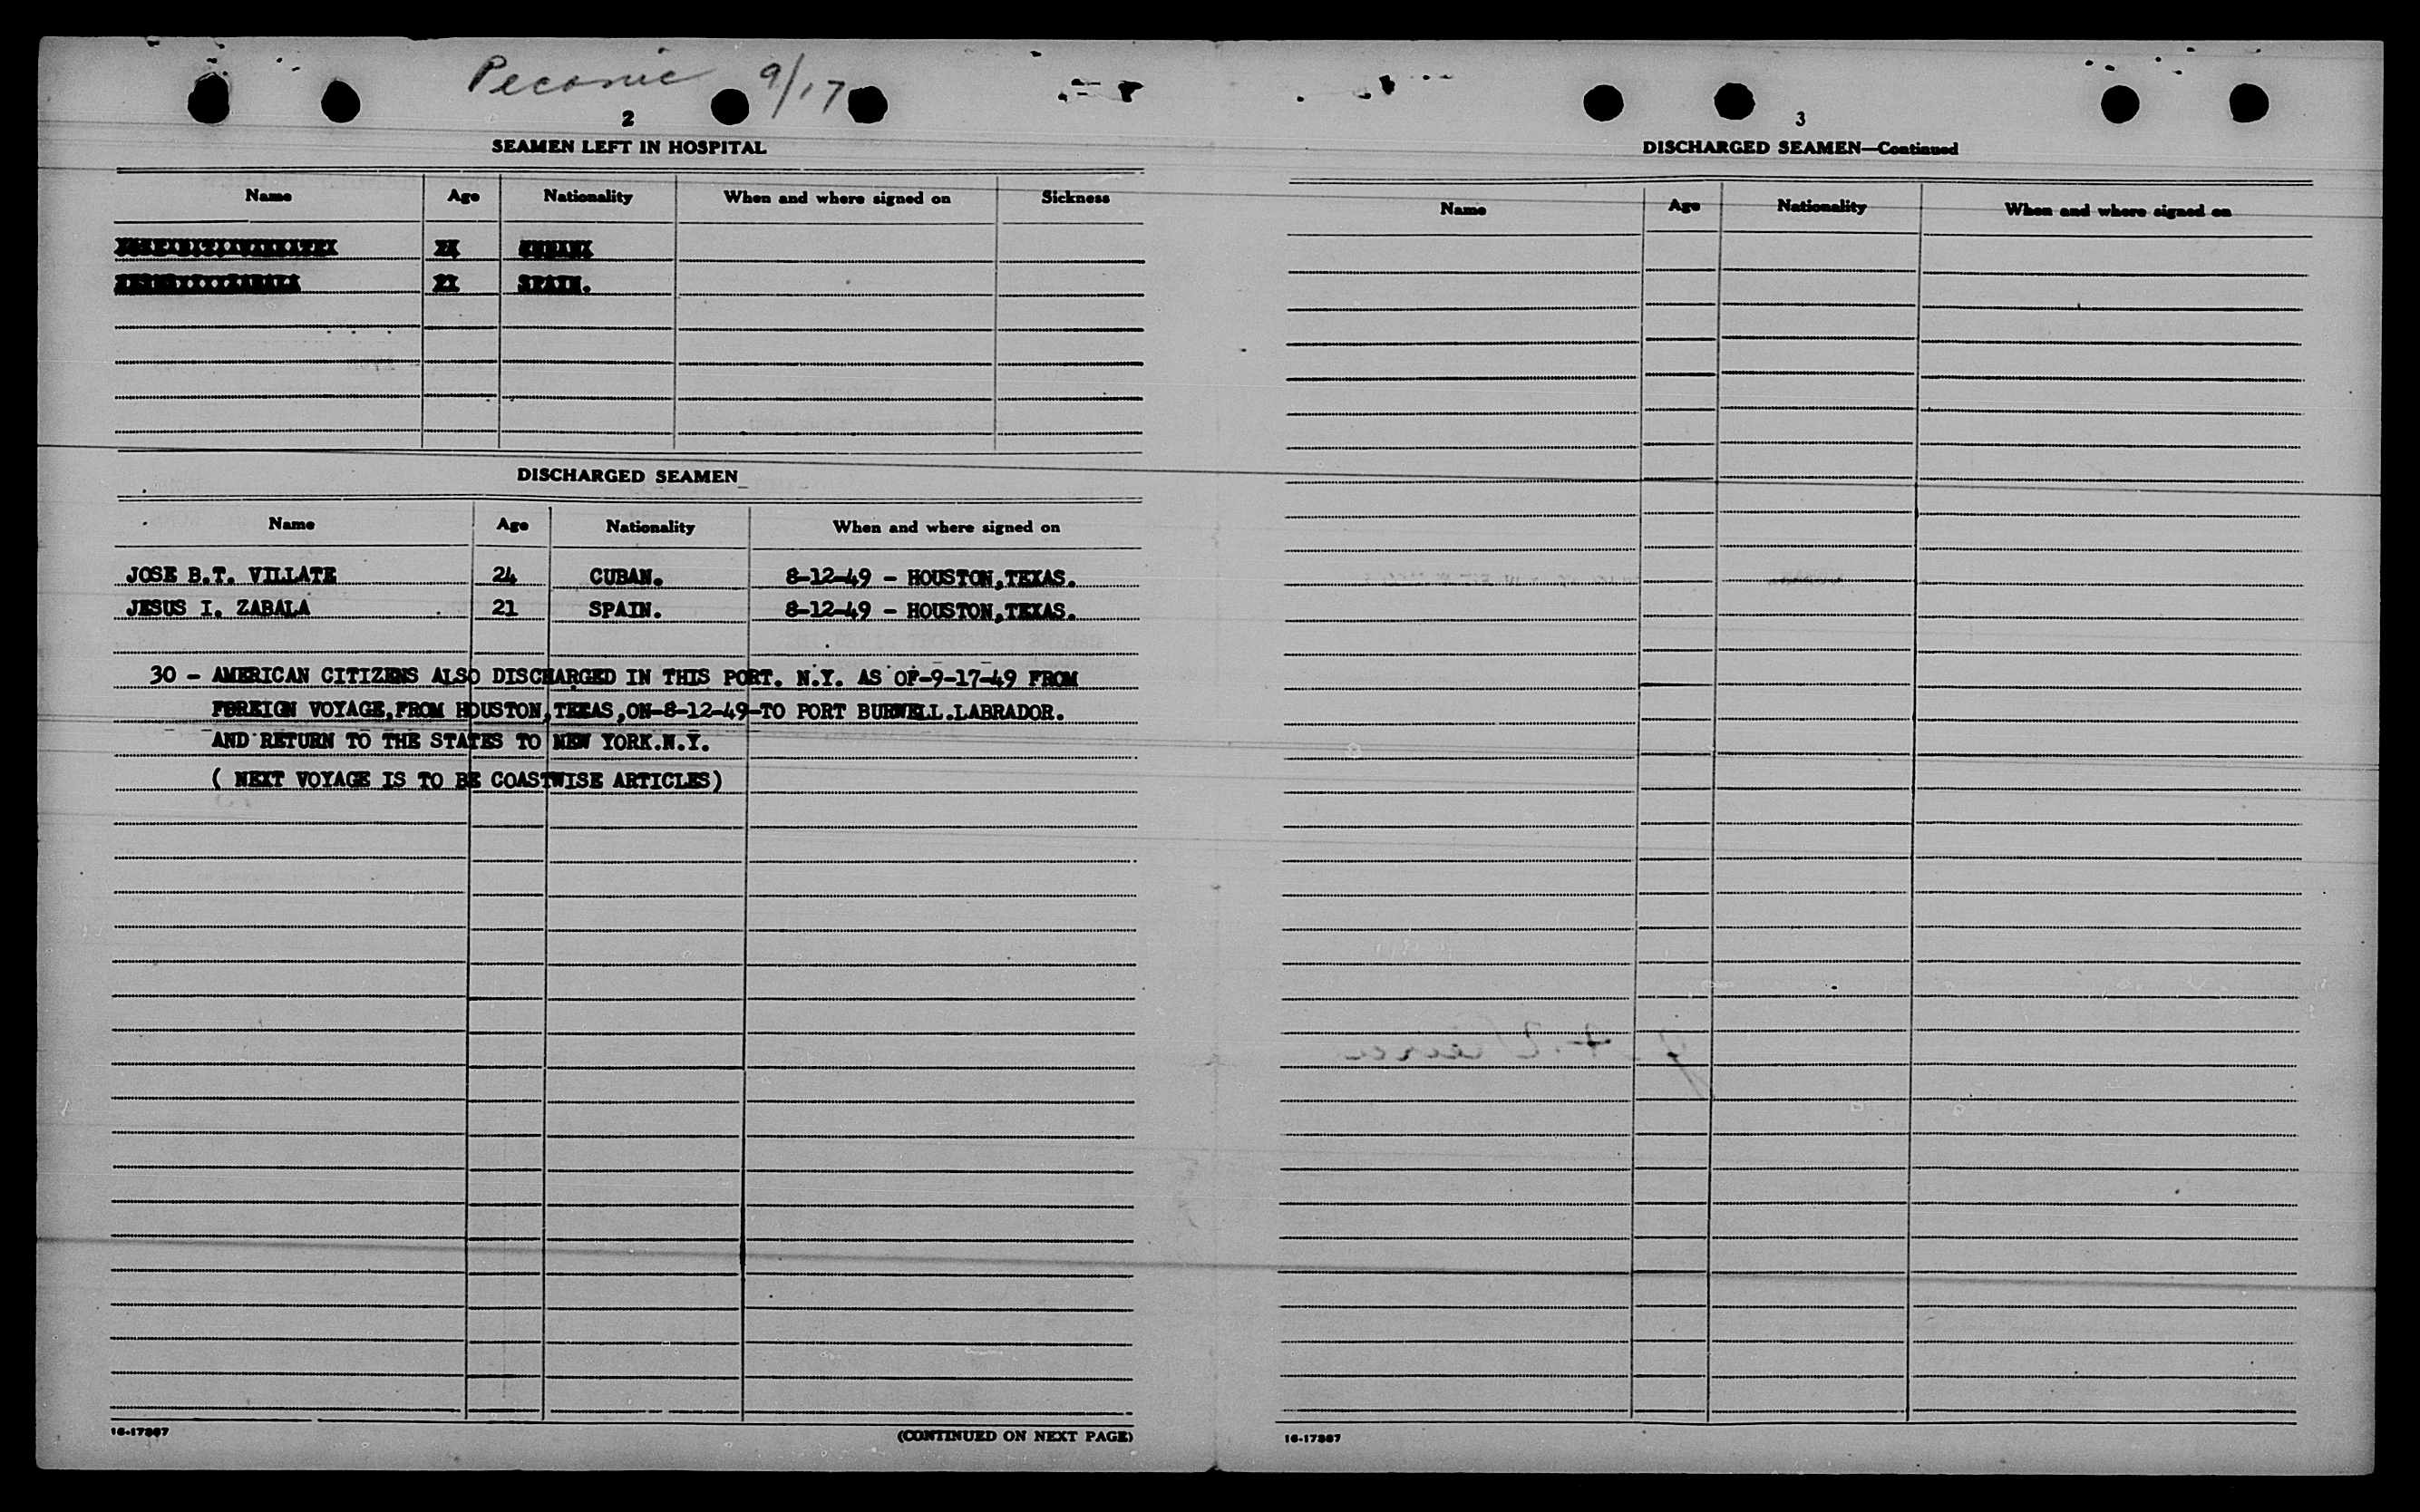 Peconic 9/17
2
SEAMEN LEFT IN HOSPITAL
Name Age Nationality When and where signed on Sickness
SPAIN.
DISCHARGED SEAMEN
Name Age Nationality When and where signed on
JOSE B.T. VILLATE 24 CUBAN. 8-12-49 - HOUSTON,TEXAS.
JESUS I. ZABALA 21 SPAIN. 8-12-49 - HOUSTON,TEXAS.
30 - AMERICAN CITIZENS ALSO DISCHARGED IN THIS PORT. N.Y. AS OF-9-17-49 FROM
FOREIGN VOYAGE,FROM HOUSTON,TEXAS,ON-8-12-49-TO PORT BURWELL.LABRADOR.
AND RETURN TO THE STATES TO NEW YORK.N.Y.
( NEXT VOYAGE IS TO BE COASTWISE ARTICLES)
16-17367
(CONTINUED ON NEXT PAGE)
3
DISCHARGED SEAMEN—Continued
Name Age Nationality When and where signed on
16-17367